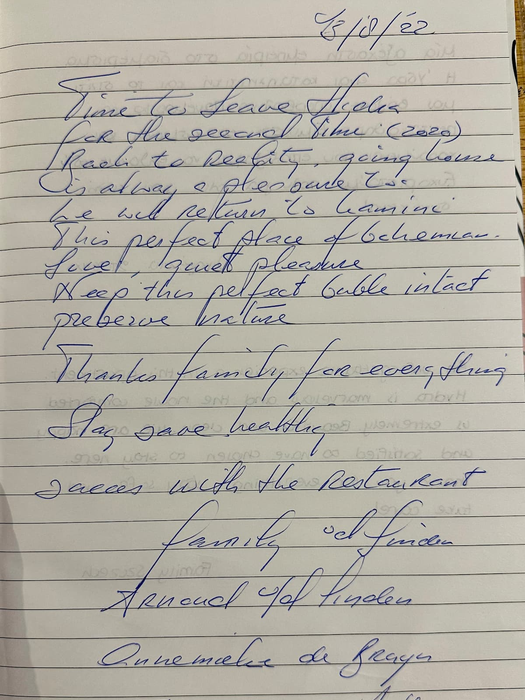 13/8/'22
Time to Leave Hydra
for the second Time. (2020)
Back to Reality. going house
is alway a pleasure to.
we will return to kamini
This perfect place of bohemian.
Love, quiet pleasure
Keep this perfect buble intact
preserve nature
Thanks family for everything
Stay save healthy
succes with the restaurant
family v/d Linden
Arnoud v/d Linden
Annemieke de